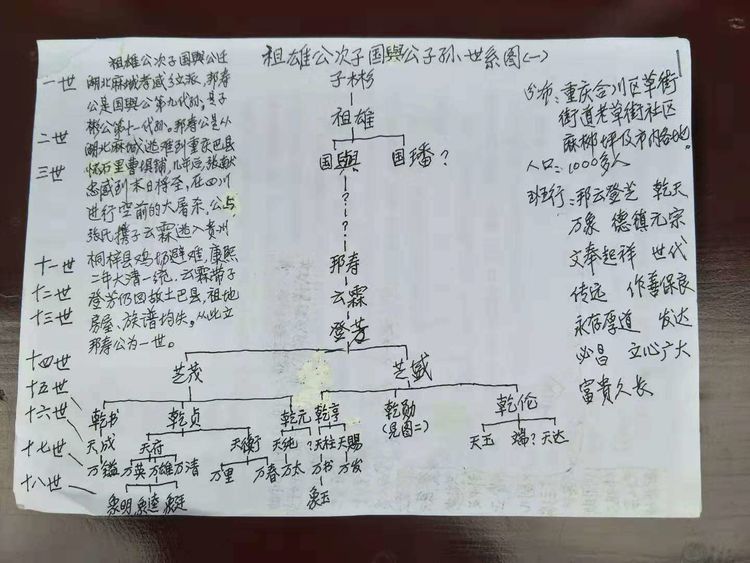 祖雄公次子国與公子孙世系图(一)
祖雄公次子国與公迁
湖北麻城孝感乡立派,邦寿
公是国與公第九代孙,是子
彬公第十一代孙。邦寿公是从
湖北麻城逃难到重庆巴县
怀石里曹俱铺,几年后,张献
忠咸到本日将至,在四川
进行空前的大屠杀,公与
张氏携子云霖逃入贵州
桐梓县鸡场避难,康熙
二年大清一统,云霖带子
登芳仍回故土巴县,祖地
房屋、族谱均失。从此立
邦寿公为一世。
一世
二世
三世
十一世
十二世
十三世
十四世
十五世
十六世
十七世
十八世
子彬
祖雄
国與 国璠?
?
?
?
邦寿
云霖
登芳
芝茂 芝盛
乾书 乾贞 乾元 乾亨 乾勋 乾伦
(见图二)
天成 天府 天衡 天纯 ? 天柱 天赐 天玉 ? 天达
万镒 万英 万雄 万清 万里 万春 万太 万书 万发
象明 象逵 象廷 象玉
分布:重庆合川区草街
街道老草街社区
麻柳坪及市内各地。
人口:1000多人
班行:邦云登芝 乾天
万象 德镇元宗
文奉起祥 世代
传远 作善保良
永存厚道 发达
必昌 立心广大
富贵久长